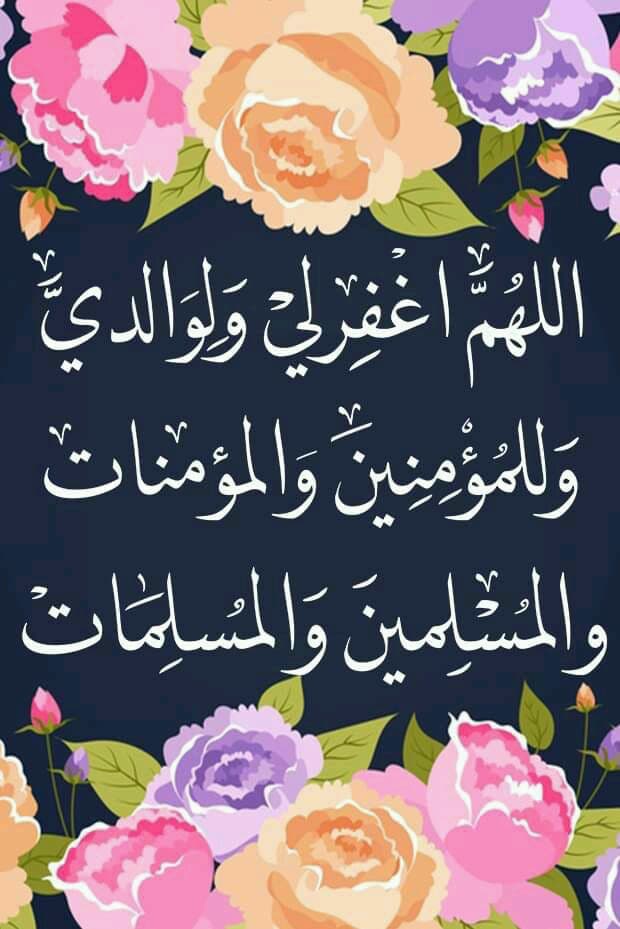 اللهُمَّ اغْفِرلِيْ وَلِوَالديَّ
وَللمُؤْمِنِينَ وَالمؤمنات
والمُسْلِمينَ وَالمُسلِمَات